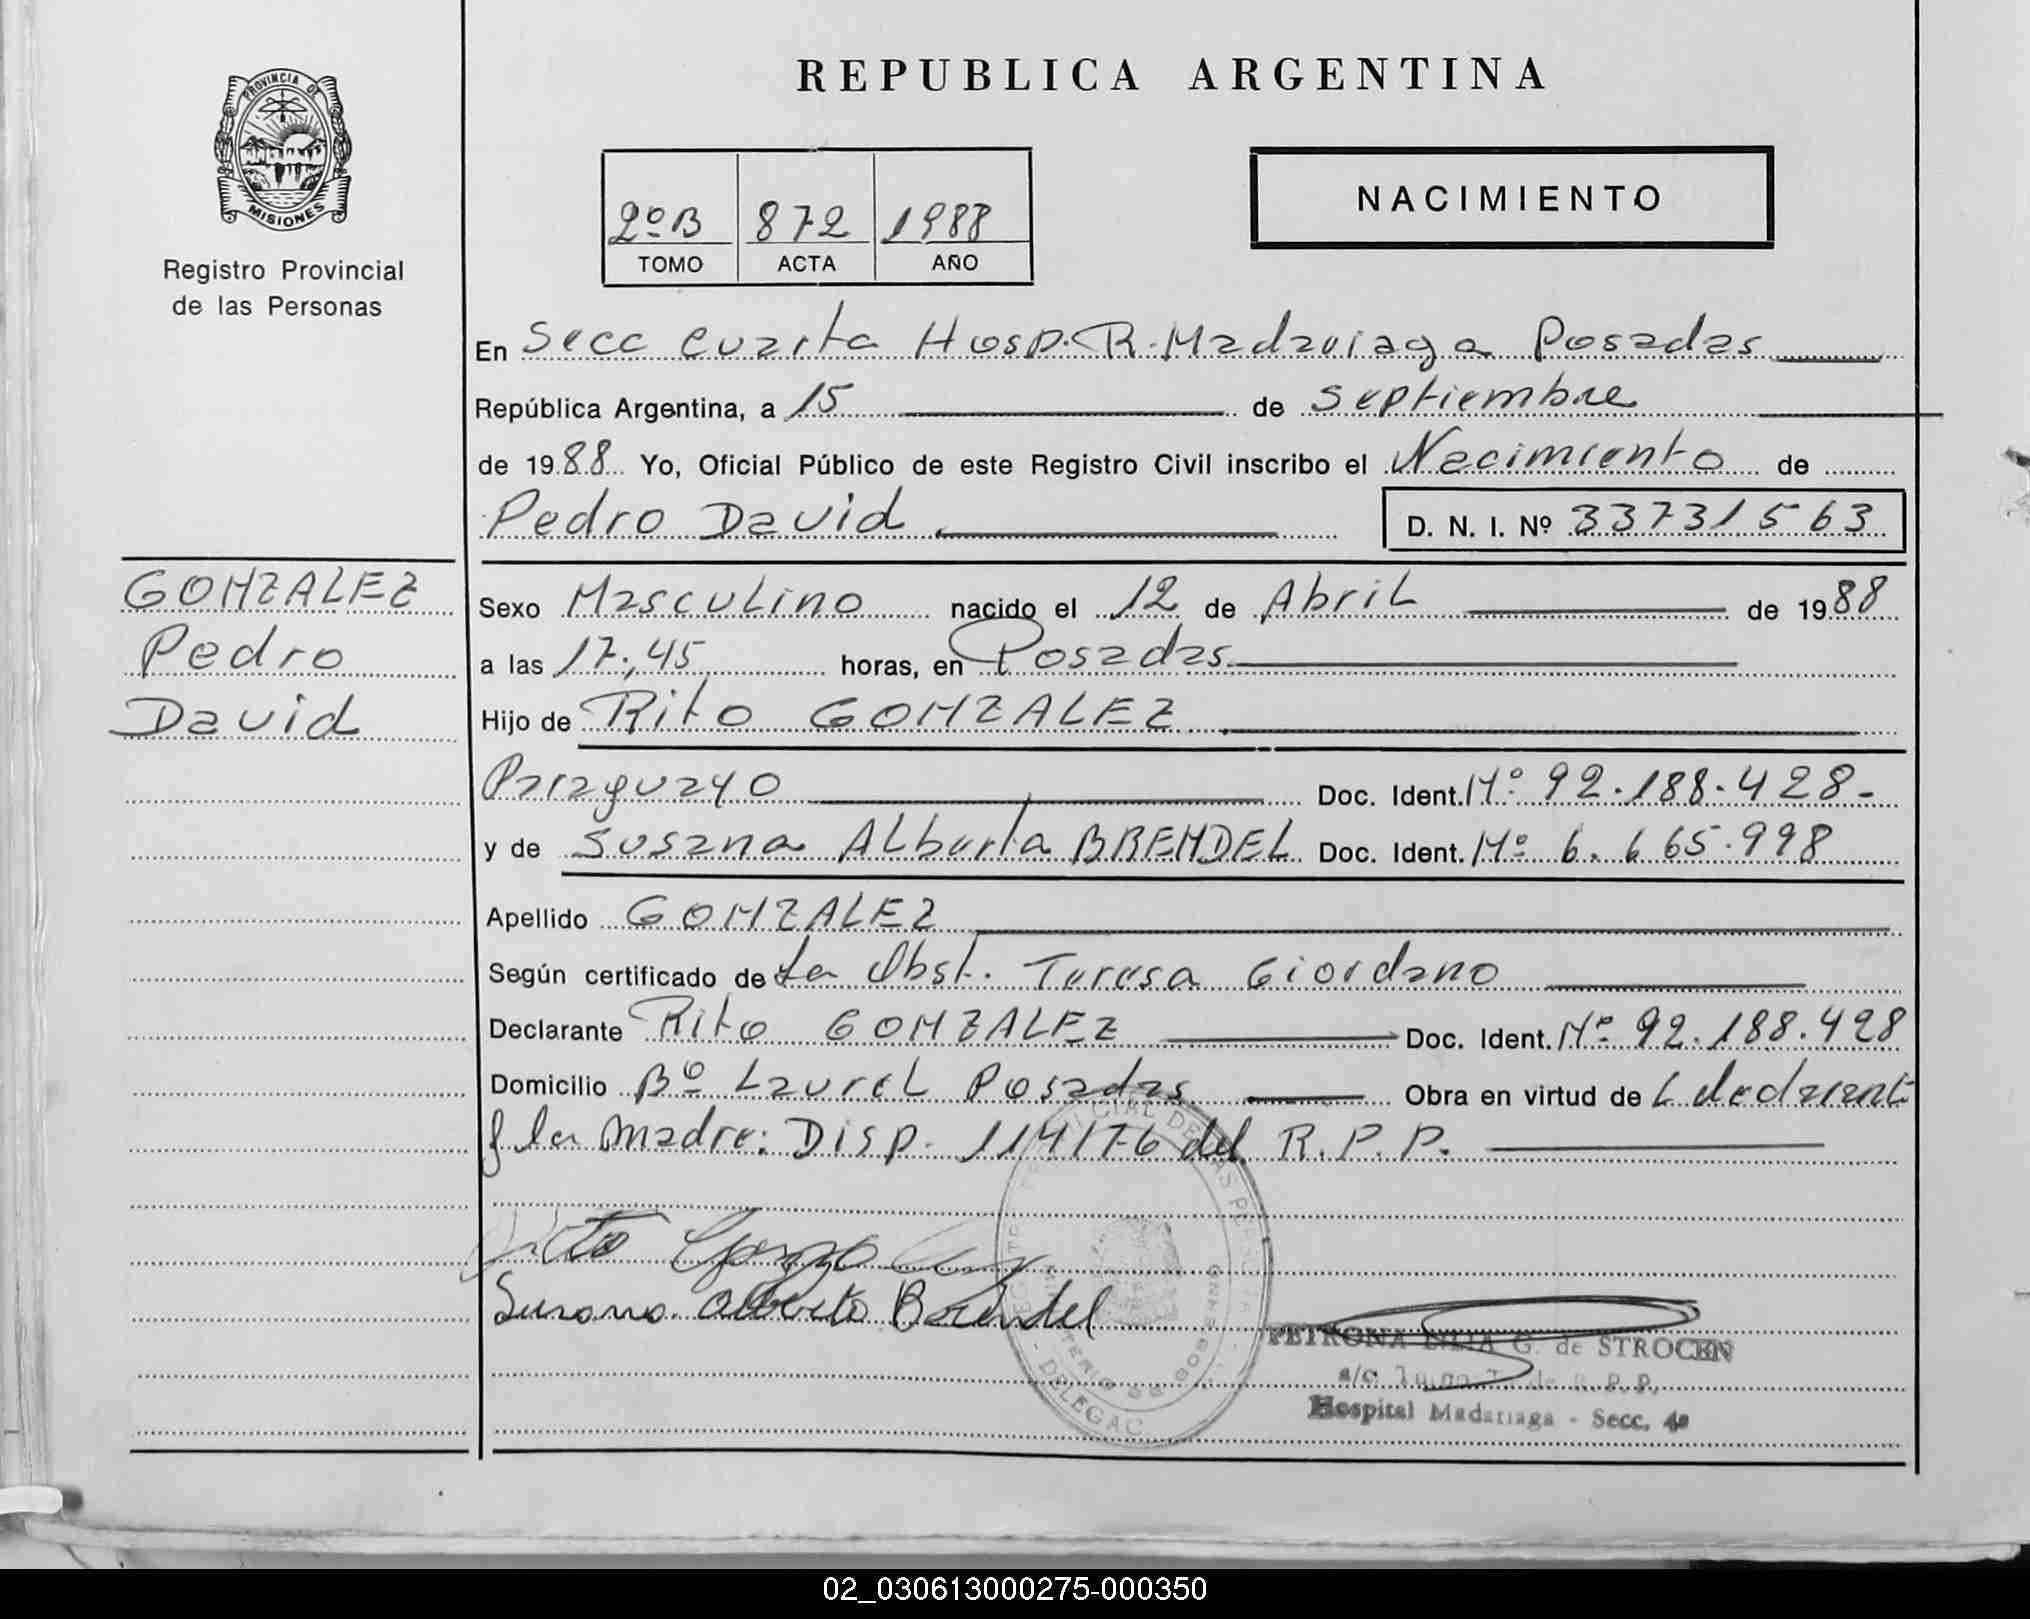 PROVINCIA DE
MISIONES
Registro Provincial
de las Personas
REPUBLICA ARGENTINA
2º B 872 1988
TOMO ACTA AÑO
NACIMIENTO
En Secc Cuarta Hosp. R. Madariaga Posadas
República Argentina, a 15 de Septiembre
de 1988 Yo, Oficial Público de este Registro Civil inscribo el Nacimiento de
Pedro David D. N. I. Nº 33731563
GONZALEZ
Pedro
David
Sexo Masculino nacido el 12 de Abril de 1988
a las 17,45 horas, en Posadas
Hijo de Rito GONZALEZ
Paraguayo Doc. Ident. Nº 92.188.428-
y de Susana Alberta BRENDEL Doc. Ident. Nº 6.665.998
Apellido GONZALEZ
Según certificado de La Obst. Teresa Giordano
Declarante Rito GONZALEZ Doc. Ident. Nº 92.188.428
Domicilio Bº Laurel Posadas Obra en virtud de
la Madre: Disp. 114/76 del R.P.P.
Rito Gonzalez
Susana Alberta Brendel
PETRONA LILIA G. de STROCEN
a/c de R. P. P.
Hospital Madariaga - Secc. 4a
DELEGAC
02_030613000275-000350